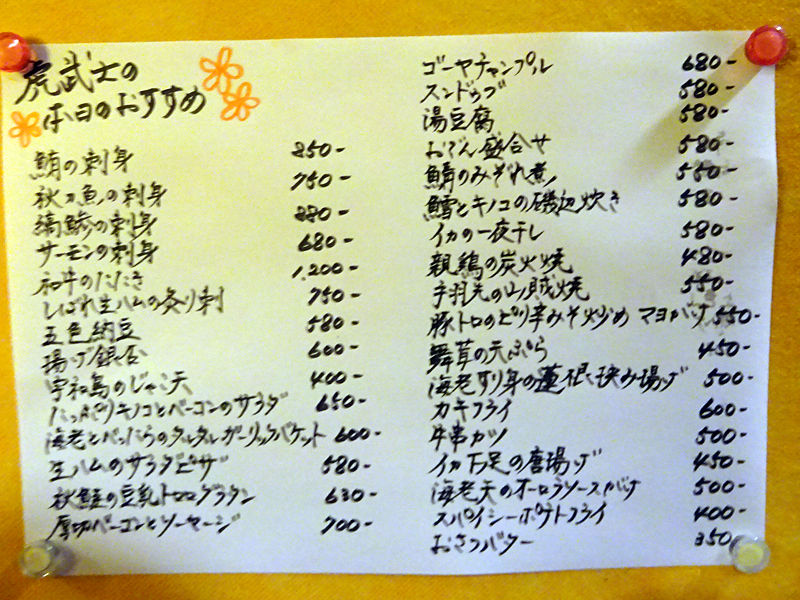 虎武士の
本日のおすすめ
鮪の刺身 850-
秋刀魚の刺身 750-
縞鯵の刺身 880-
サーモンの刺身 680-
和牛のたたき 1,200-
しばれ生ハムの炙り刺 750-
五色納豆 580-
揚げ銀杏 600-
宇和島のじゃこ天 400-
たっぷりキノコとベーコンのサラダ 650-
海老とたっぷりのタルタルガーリックバケット 600-
生ハムのサラダピザ 580-
秋鮭の豆乳トロログラタン 630-
厚切ベーコンとソーセージ 700-
ゴーヤチャンプル 680-
スンドゥブ 580-
湯豆腐 580-
おでん盛合せ 580-
鯖のみぞれ煮 550-
鱈とキノコの磯辺炊き 580-
イカの一夜干し 580-
親鶏の炭火焼 480-
手羽先の山賊焼 550-
豚トロのピリ辛みそ炒め マヨがけ 550-
舞茸の天ぷら 450-
海老すり身の蓮根挟み揚げ 500-
カキフライ 600-
牛串カツ 500-
イカ下足の唐揚げ 450-
海老天のオーロラソースがけ 500-
スパイシーポテトフライ 400-
おさつバター 350-